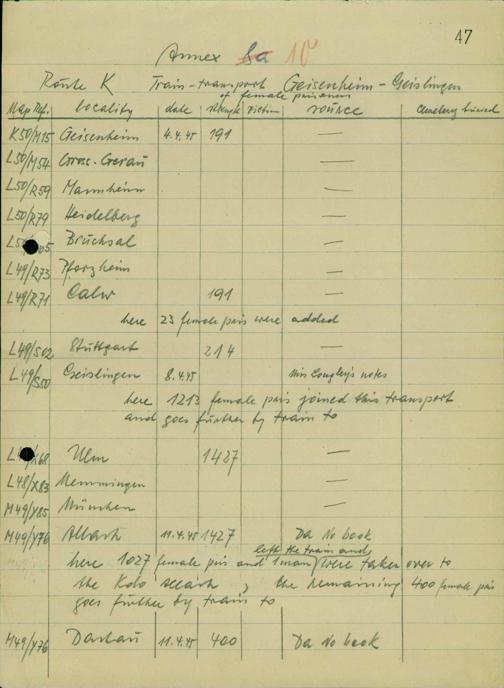 47
Annex 8a 10
Route K Train-transport Geisenheim - Geislingen
of female prisoners
Map Ref. locality date strength victims source cemetery buried
K50/M15 Geisenheim 4.4.45 191 —
L50/M54 Gross-Gerau —
L50/R59 Mannheim —
L50/R79 Heidelberg —
Bruchsal —
L49/R73 Pforzheim —
L49/R71 Calw 191 —
here 23 female pris were added
L49/S02 Stuttgart 214 —
L49/S50 Geislingen 8.4.45 Miss notes
here 1213 female pris joined this transport
and goes further by train to
Ulm 1427 —
L48/X83 Memmingen —
M49/Y85 München —
M49/Y76 Allach 11.4.45 1427 Da No book
left the train and
here 1027 female pris and 1 man were taken over to
the Kdo Allach, the remaining 400 female pris
goes further by train to
M49/Y76 Dachau 11.4.45 400 Da No book